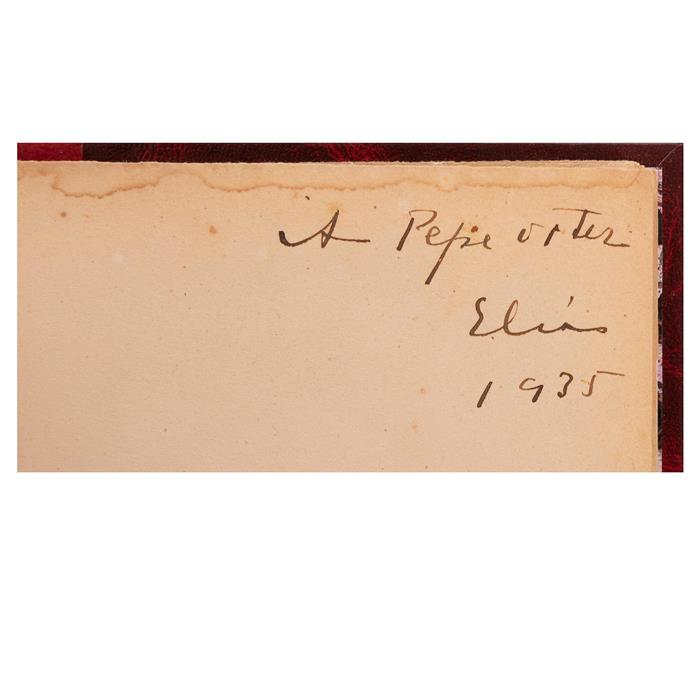 A Pepe Ortiz
Elías
1935